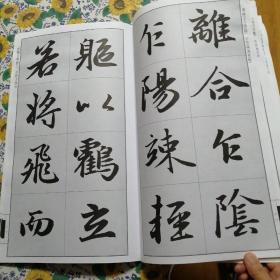 離合乍陰
乍陽竦輕
軀以鶴立
若將飛而